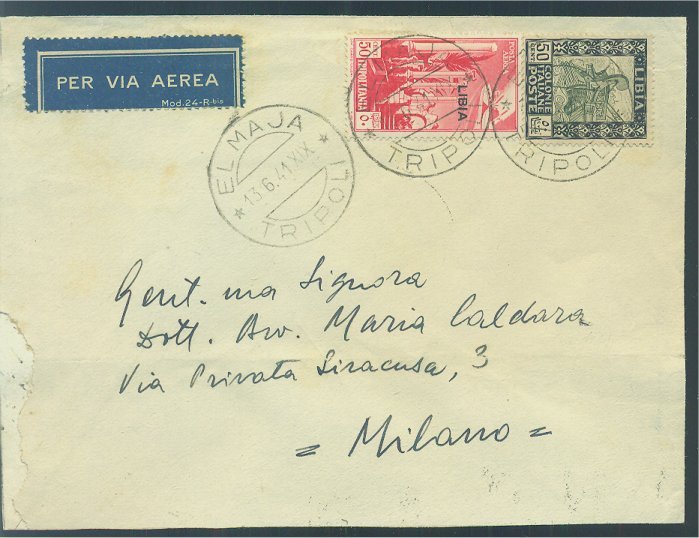 PER VIA AEREA
Mod.24-R-bis
EL MAJA
13.6.41 XIX
TRIPOLI
POSTA AEREA
50 TRIPOLITANIA
LIBIA
TRIPOLI
50
COLONIE ITALIANE
POSTE
LIBIA
TRIPOLI
Gent.ma Signora
Dott. Avv. Maria Caldara
Via Privata Siracusa, 3
= Milano =